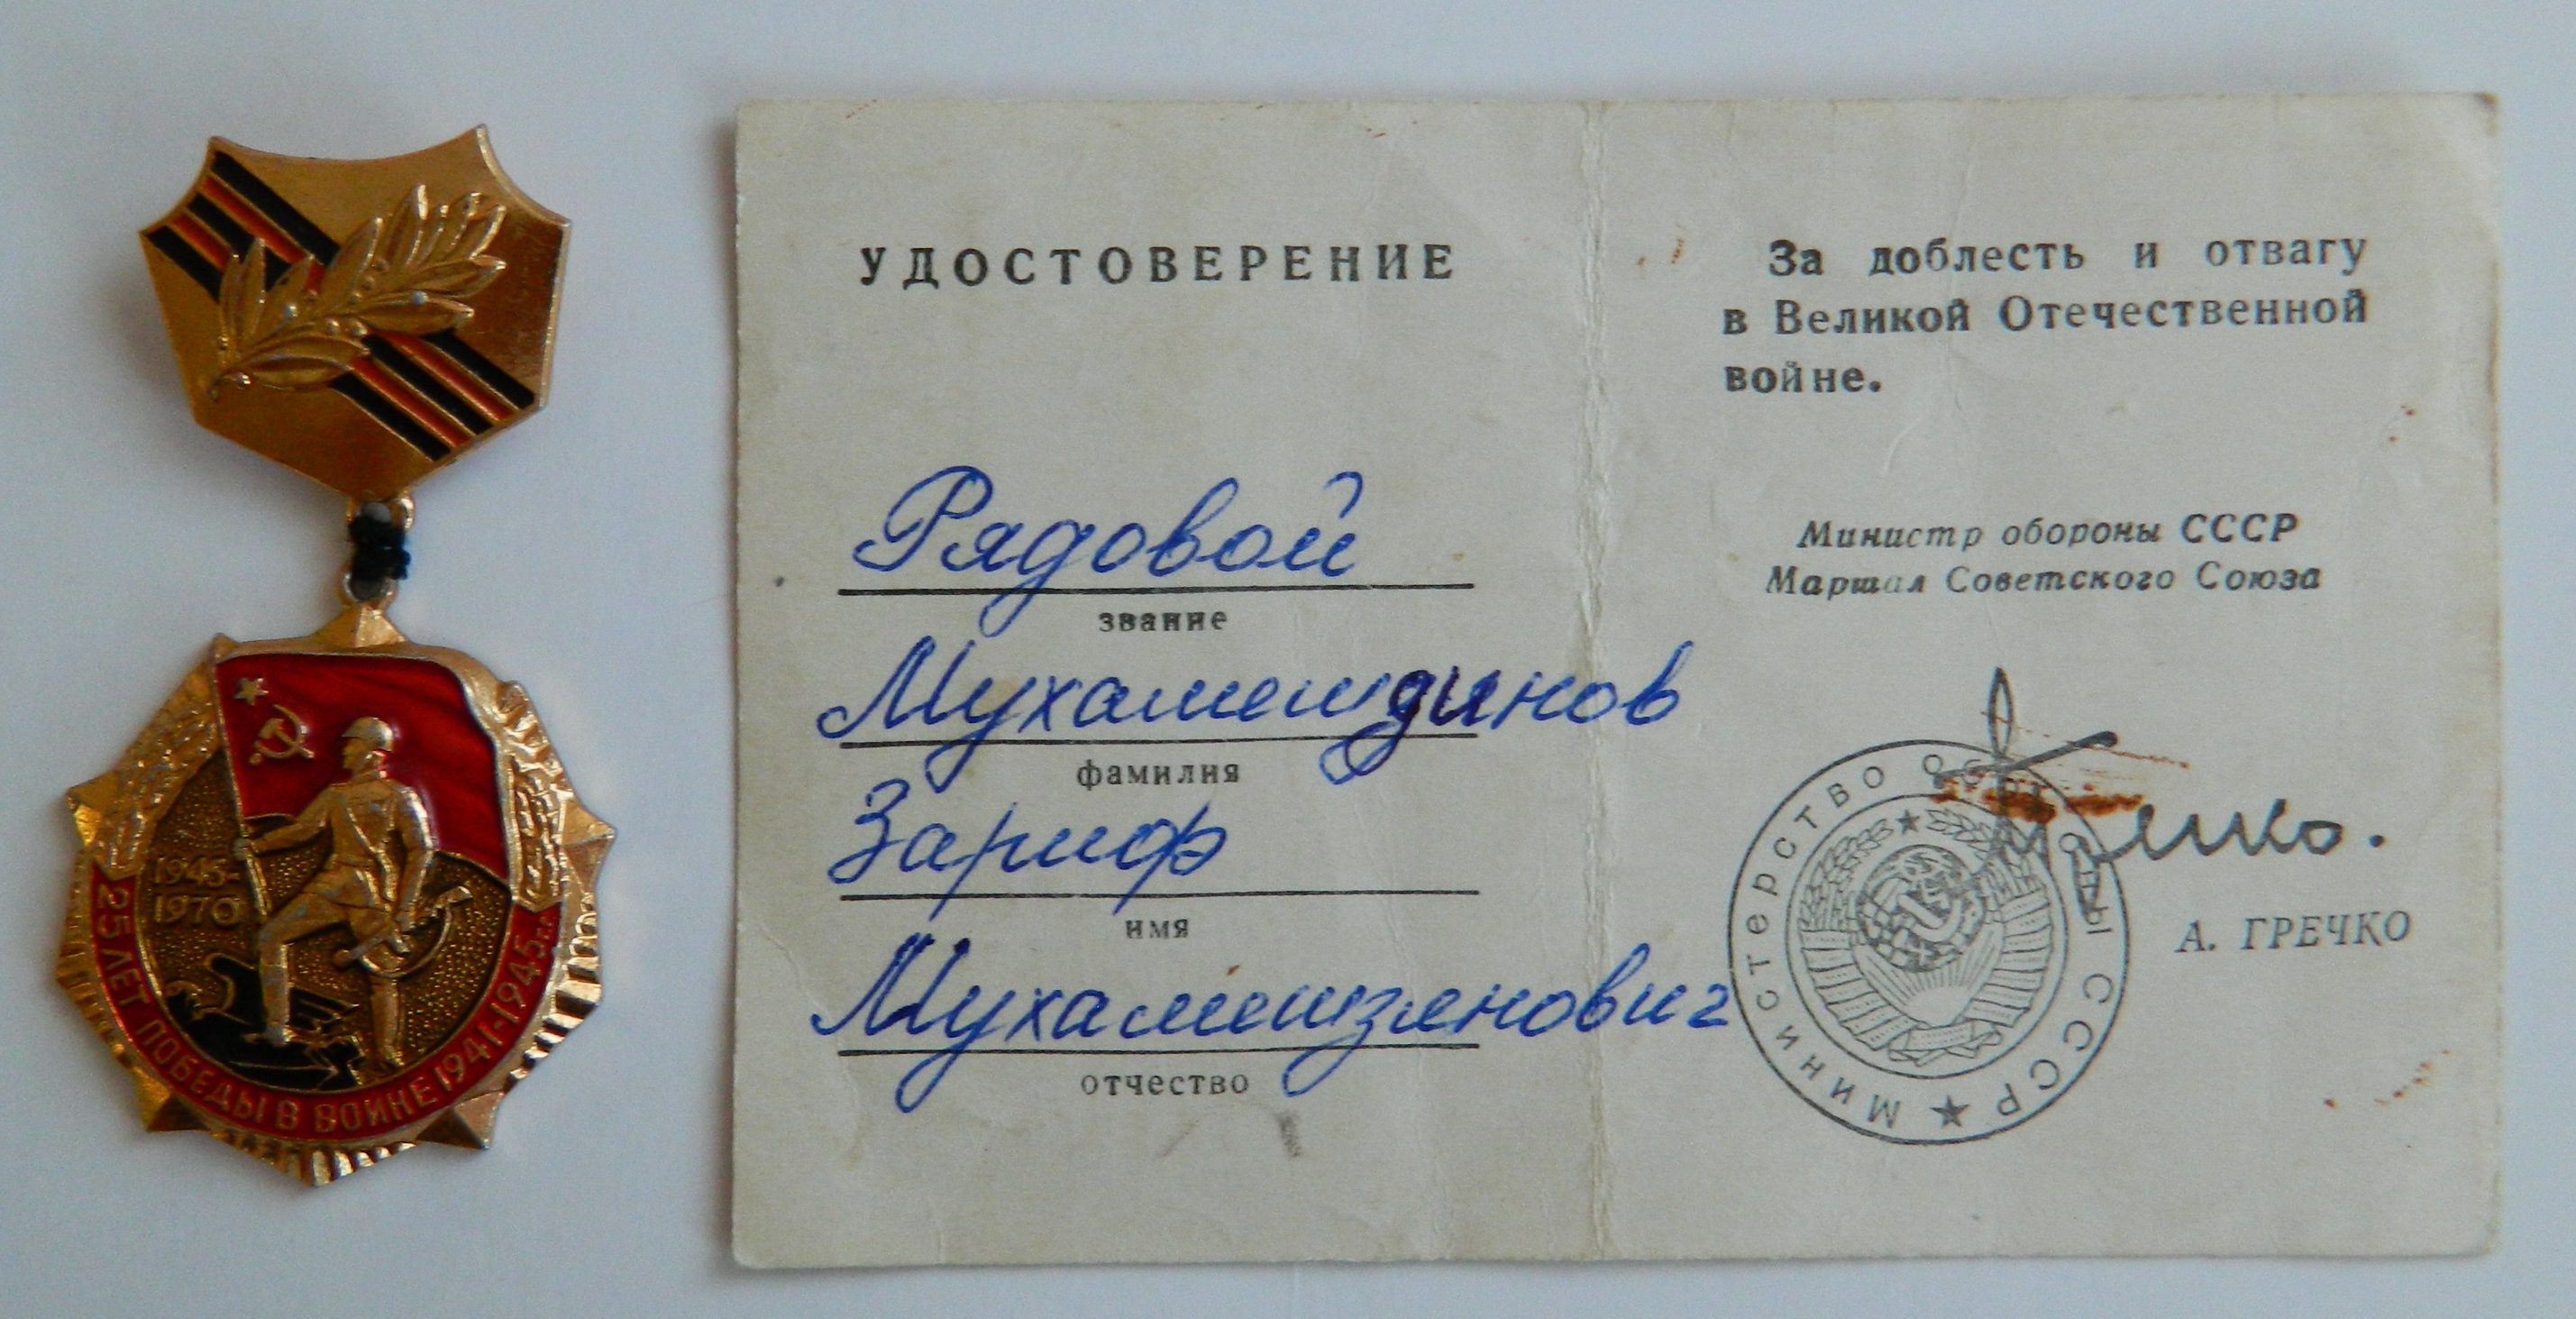 1945-
1970
25 ЛЕТ ПОБЕДЫ В ВОЙНЕ 1941-1945гг.
УДОСТОВЕРЕНИЕ
Рядовой
звание
Мухамешдинов
фамилия
Зариф
имя
Мухамешзянович
отчество
За доблесть и отвагу
в Великой Отечественной
войне.
Министр обороны СССР
Маршал Советского Союза
А. ГРЕЧКО
Министерство обороны СССР